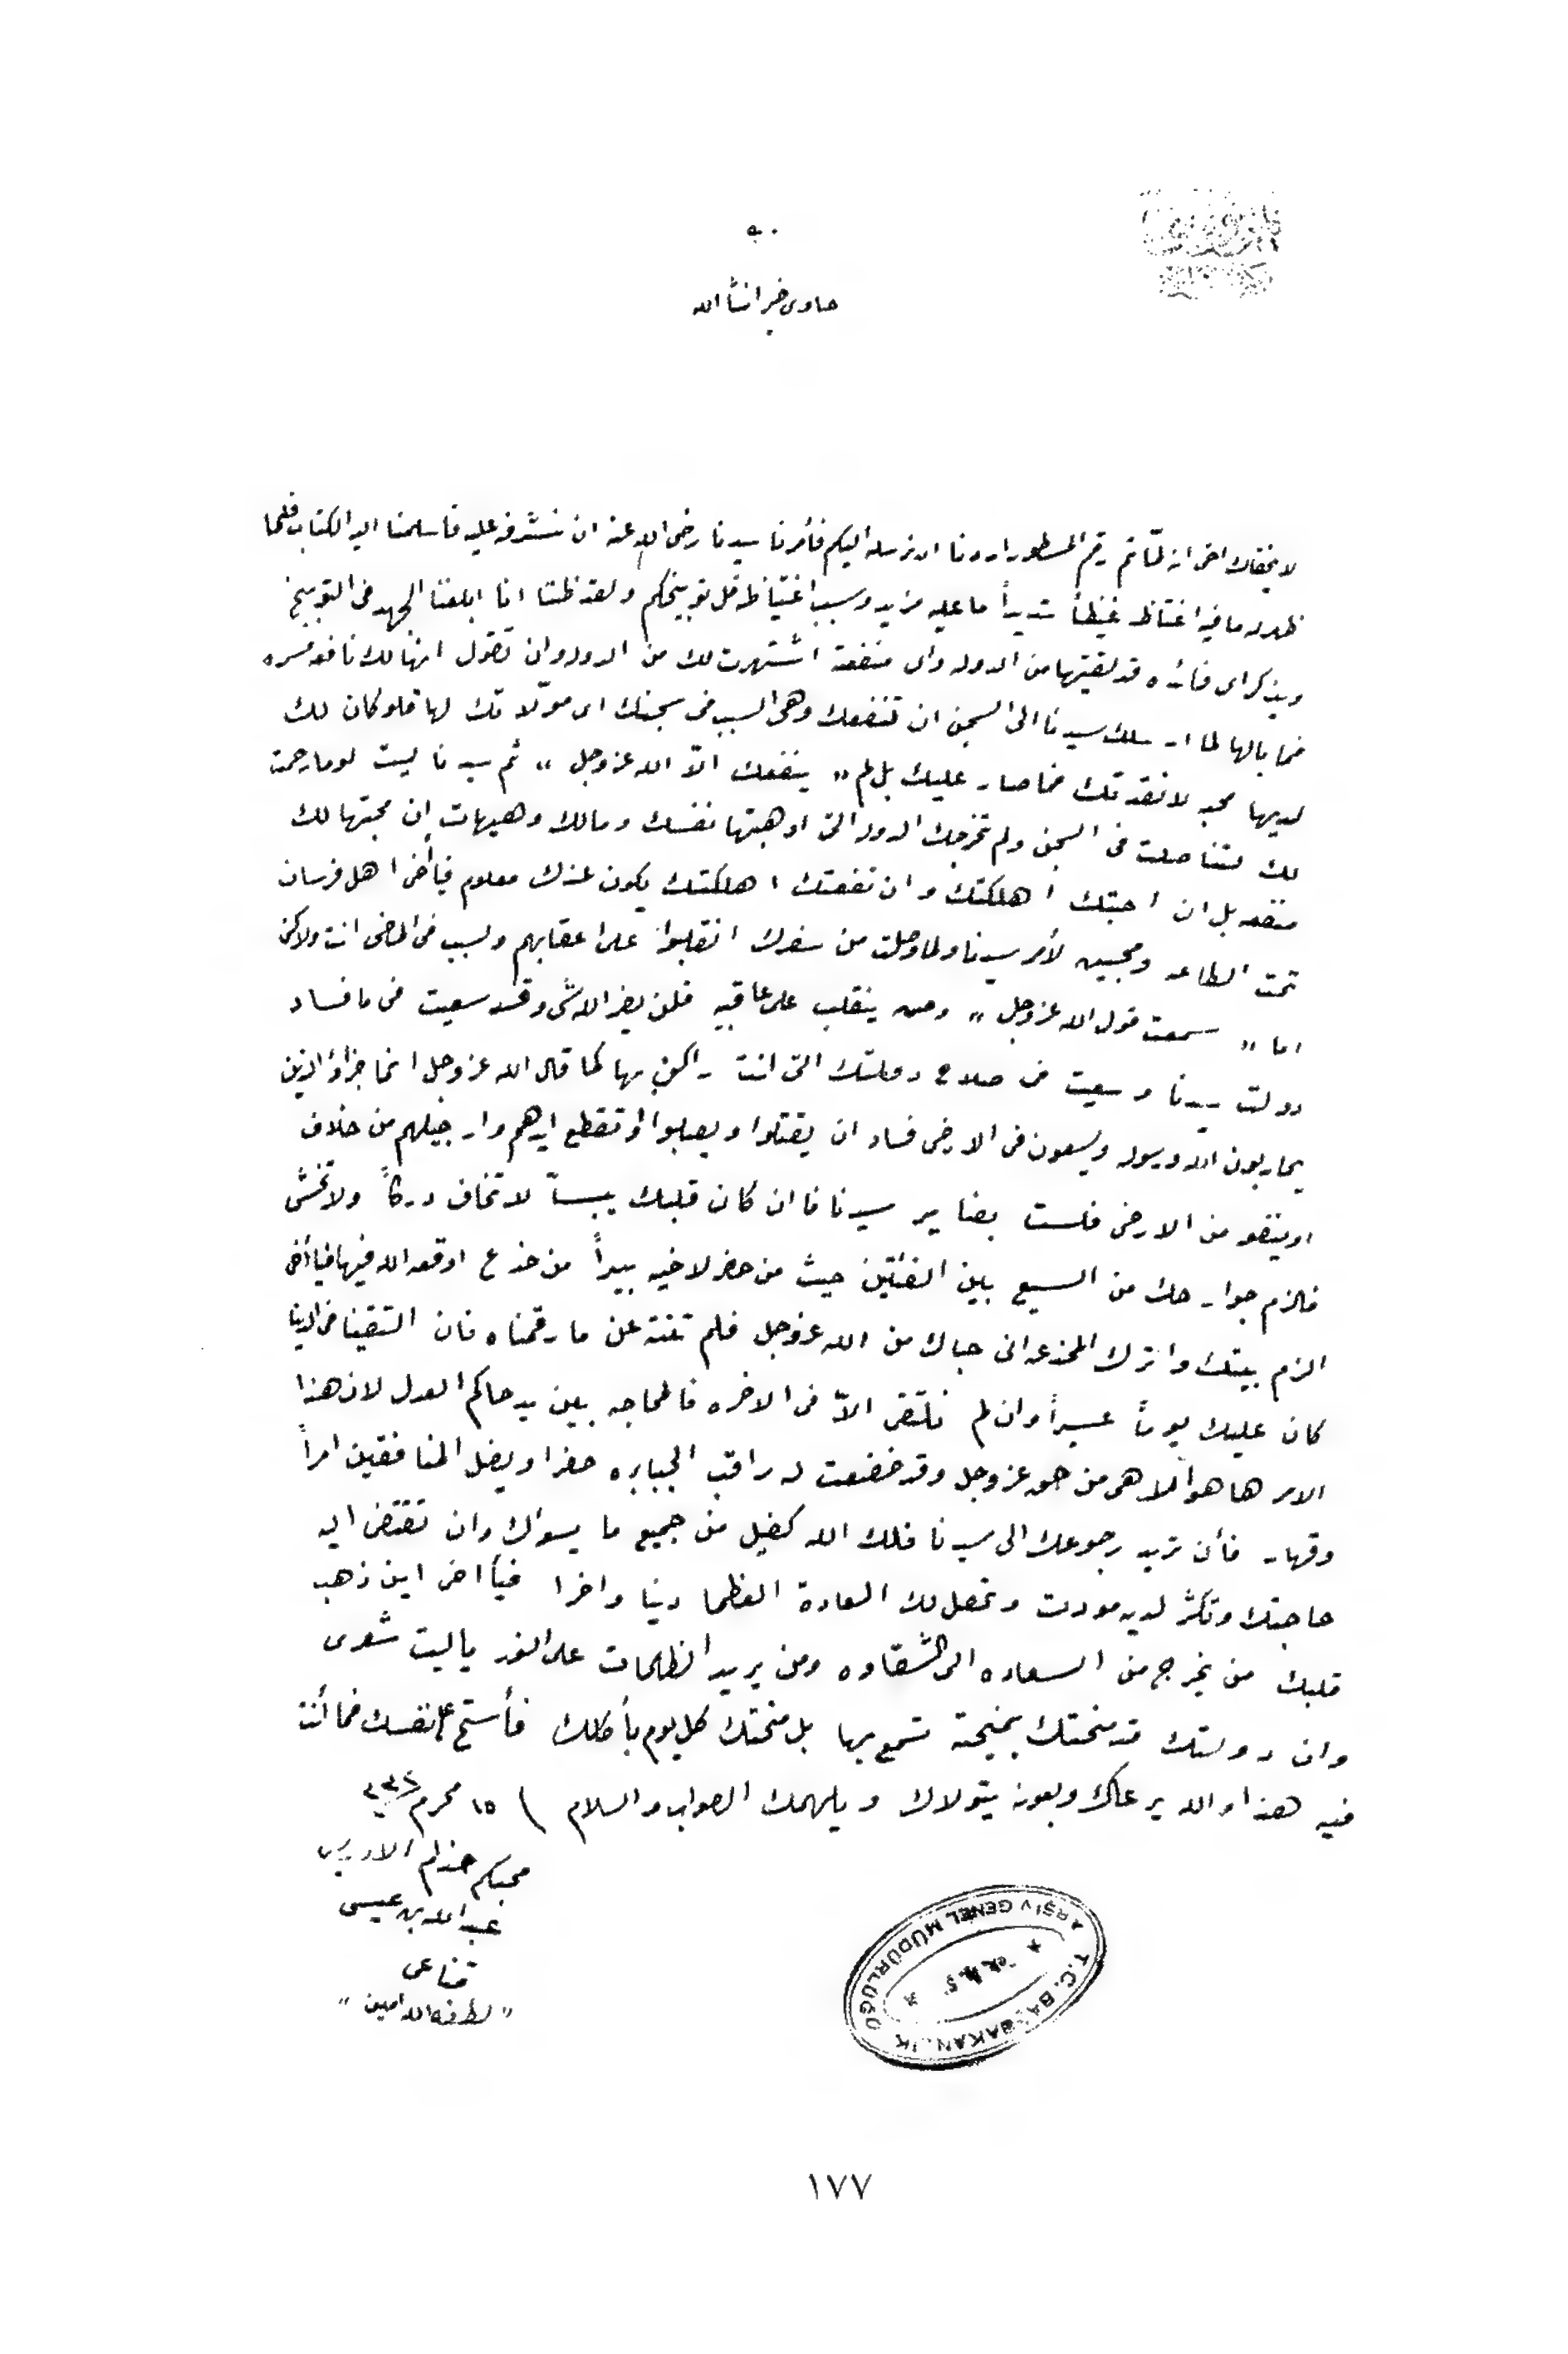 حاوى خير انشا الله
لا يخفاك اخى انه لمّا تم رقم المسطور اردنا ان نرسله اليكم فأمرنا سيدنا رضى الله عنه ان نشرفه عليه فاسلمنا اليه الكتاب فلما
ظهر له ما فيه اغتاظ غيظاً شديداً ما عليه مزيد وسبب اغتياظه قل توبيخكم ولقد ظننا انا ابلغنا الجهد فى التوبيخ
ويذكر اى فائده قد لقيتها من الدوله واى منفعة اشتهرت لك من الدوله وان تقول انها لك نافعه مسره
فما بالها لما ارسلك سيدنا الى السجن ان تنفعك وهى السبب فى سجنك اى موّلاتك لها فلو كان لك
لديها محبه لانقدتك فما صار عليك بل لم " ينفعك الاّ الله عز وجل " ثم سيدنا ليت لو ما رحمة
لك لتناصلت فى السجن ولم تخرجك الدوله التى اوهبتها نفسك ومالك وهيهات إن محبتها لك
منفعه بل ان احبتك اهلكتك وان نفعتك اهلكتك يكون عندك معلوم فيأخى اهل فرسان
تحت الطاعه ومجيبين لأمر سيدنا ولما وصلت من سفرك انقلبوا على اعقابهم والسبب فى الماضى انت ولاكن
اما " سمعت قول الله عز وجل " ومن ينقلب على عاقبيه فلن يضر الله شى وقد سعيت فى ما فساد
دولت سيدنا وسعيت فى صلاح دولتك التى انت راكن بها كما قال الله عز وجل انما جزاؤ الذين
يحاربون الله ورسوله ويسعون فى الارض فساد ان يقتلوا ويصلبوا او تقطع ايدهم وارجيلهم من خلاف
اوينفو من الارض فلست بضاير سيدنا فا ان كان قلبك يبساً لا تخاف دركاً ولا تخشى
فالزم جوارحك من السيع بين الفئتين حيث من حفر لاخيه بيراً من خدع اوقعه الله فيها فيا أخى
الزم بيتك واترك المخدعه انى حباك من الله عز وجل فلم تنته عن ما رقمناه فان التقينا فى الدنيا
كان عليك يوماً عسيراً وان لم نلتقى الاّ فى الاخره فالمحاجه بين يد حاكم العدل لان هذا
الامر ها هو الا هى من حق عز وجل وقد خضعت له راقب الجبابره حفرا ويضل المنافقين امراً
وقهار فأن تريد رجوعك الى سيدنا فلك الله كفيل من جميع ما يسواك وان تقتضى اليه
حاجتك وتكثر لديه مودت وتحصل لك السعادة العظما دينا واخرا فيأاخى اين ذهب
قلبك من يخرج من السعاده الى الشقاوه ومن يريد الظلمات على النور ياليت شعرى
وان دولتك قد منحتك بمنيحة تسمع بها بل منحتك كل يوم بأ فأستح على نفسك فما أنت
فيه هذا والله يرعاك وبعونه يتولاك ويلهمك الصواب والسلام \ ١٥ محرم
محبكم خدام الادريسى
عبد الله بن عيسى
قناعى
" لطف الله امين "
T.C. BAŞBAKANLIK
ARŞİV GENEL MÜDÜRLÜĞÜ
١٧٧